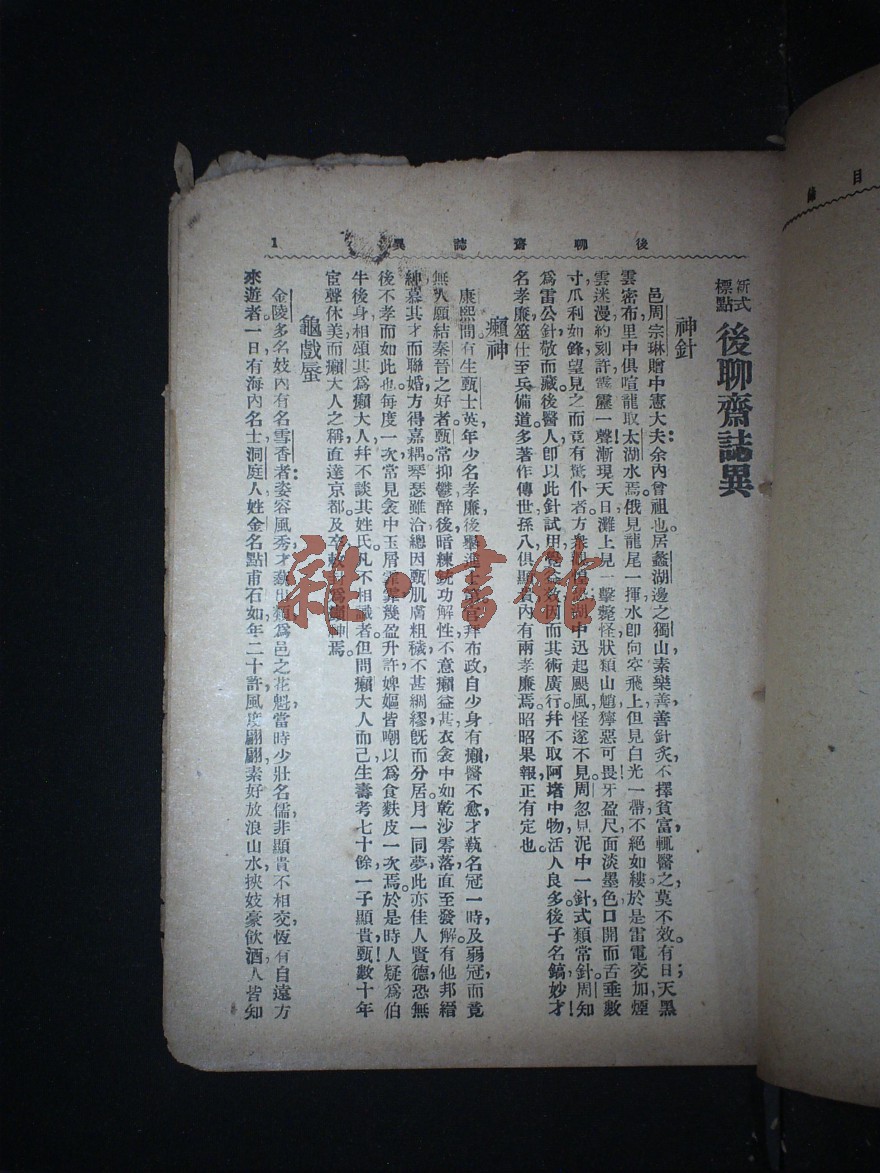 目錄
後聊齋誌異 1
新式標點 後聊齋誌異
神針
邑周宗琳贈中憲大夫余內曾祖也。居蠡湖邊之獨山素樂善善針炙不擇貧富輒醫之莫不效。有日天黑
雲密布里中俱喧龍取太湖水焉俄見龍尾一揮水卽向空飛上但見白光一帶不絕如縷於是雷電交加煙
雲迷漫約刻許霹靂一聲漸現天日灘上見一擊斃怪狀類山魈獰惡可畏牙盈尺面淡墨色口開而舌垂數
寸爪利如鋒望見之而竟有驚仆者。方衆觀間湖中迅起颶風怪遂不見。周忽見泥中一針式類常針。周知
爲雷公針敬而藏。後醫人卽以此針試用愈效因而其術廣行。幷不取阿堵中物活人良多。後子名鎬妙才
名孝廉筮仕至兵備道。多著作傳世。孫八俱顯其內有兩孝廉焉。昭昭果報正有定也。
癩神
康熙間有生甄士英年少名孝廉後舉進士官拜布政自少身有癩醫不愈才執名冠一時及弱冠而竟
無人願結秦晉之好者。甄常抑鬱醉後暗練功解性不意癩益甚衣衾中如乾沙零落直至發解有他邦縉
紳慕其才而聯婚方得嘉耦琴瑟雖洽總因甄肌膚粗穢不甚綢繆旣而分居月一同夢此亦佳人賢德恐無
後不孝而如此也。每度一次常見衾中玉屑霏霏幾盈升許婢嫗皆嘲以爲食麩皮一次焉。於是時人疑爲伯
牛後身相頌其爲癩大人幷不談其姓氏凡不相識者但問癩大人而已生壽考七十餘一子顯貴甄數十年
宦聲休美而癩大人之稱直達京都及卒敕封爲神焉。
龜戲蜃
金陵多名妓內有名雪香者姿容風秀才藝出類爲邑之花魁當時少壯名儒非顯貴不相交恆有自遠方
來遊者。一日有海內名士洞庭人姓金名點甫石如年二十許風度翩翩素好放浪山水挾妓豪飲酒人皆知
雜·書館